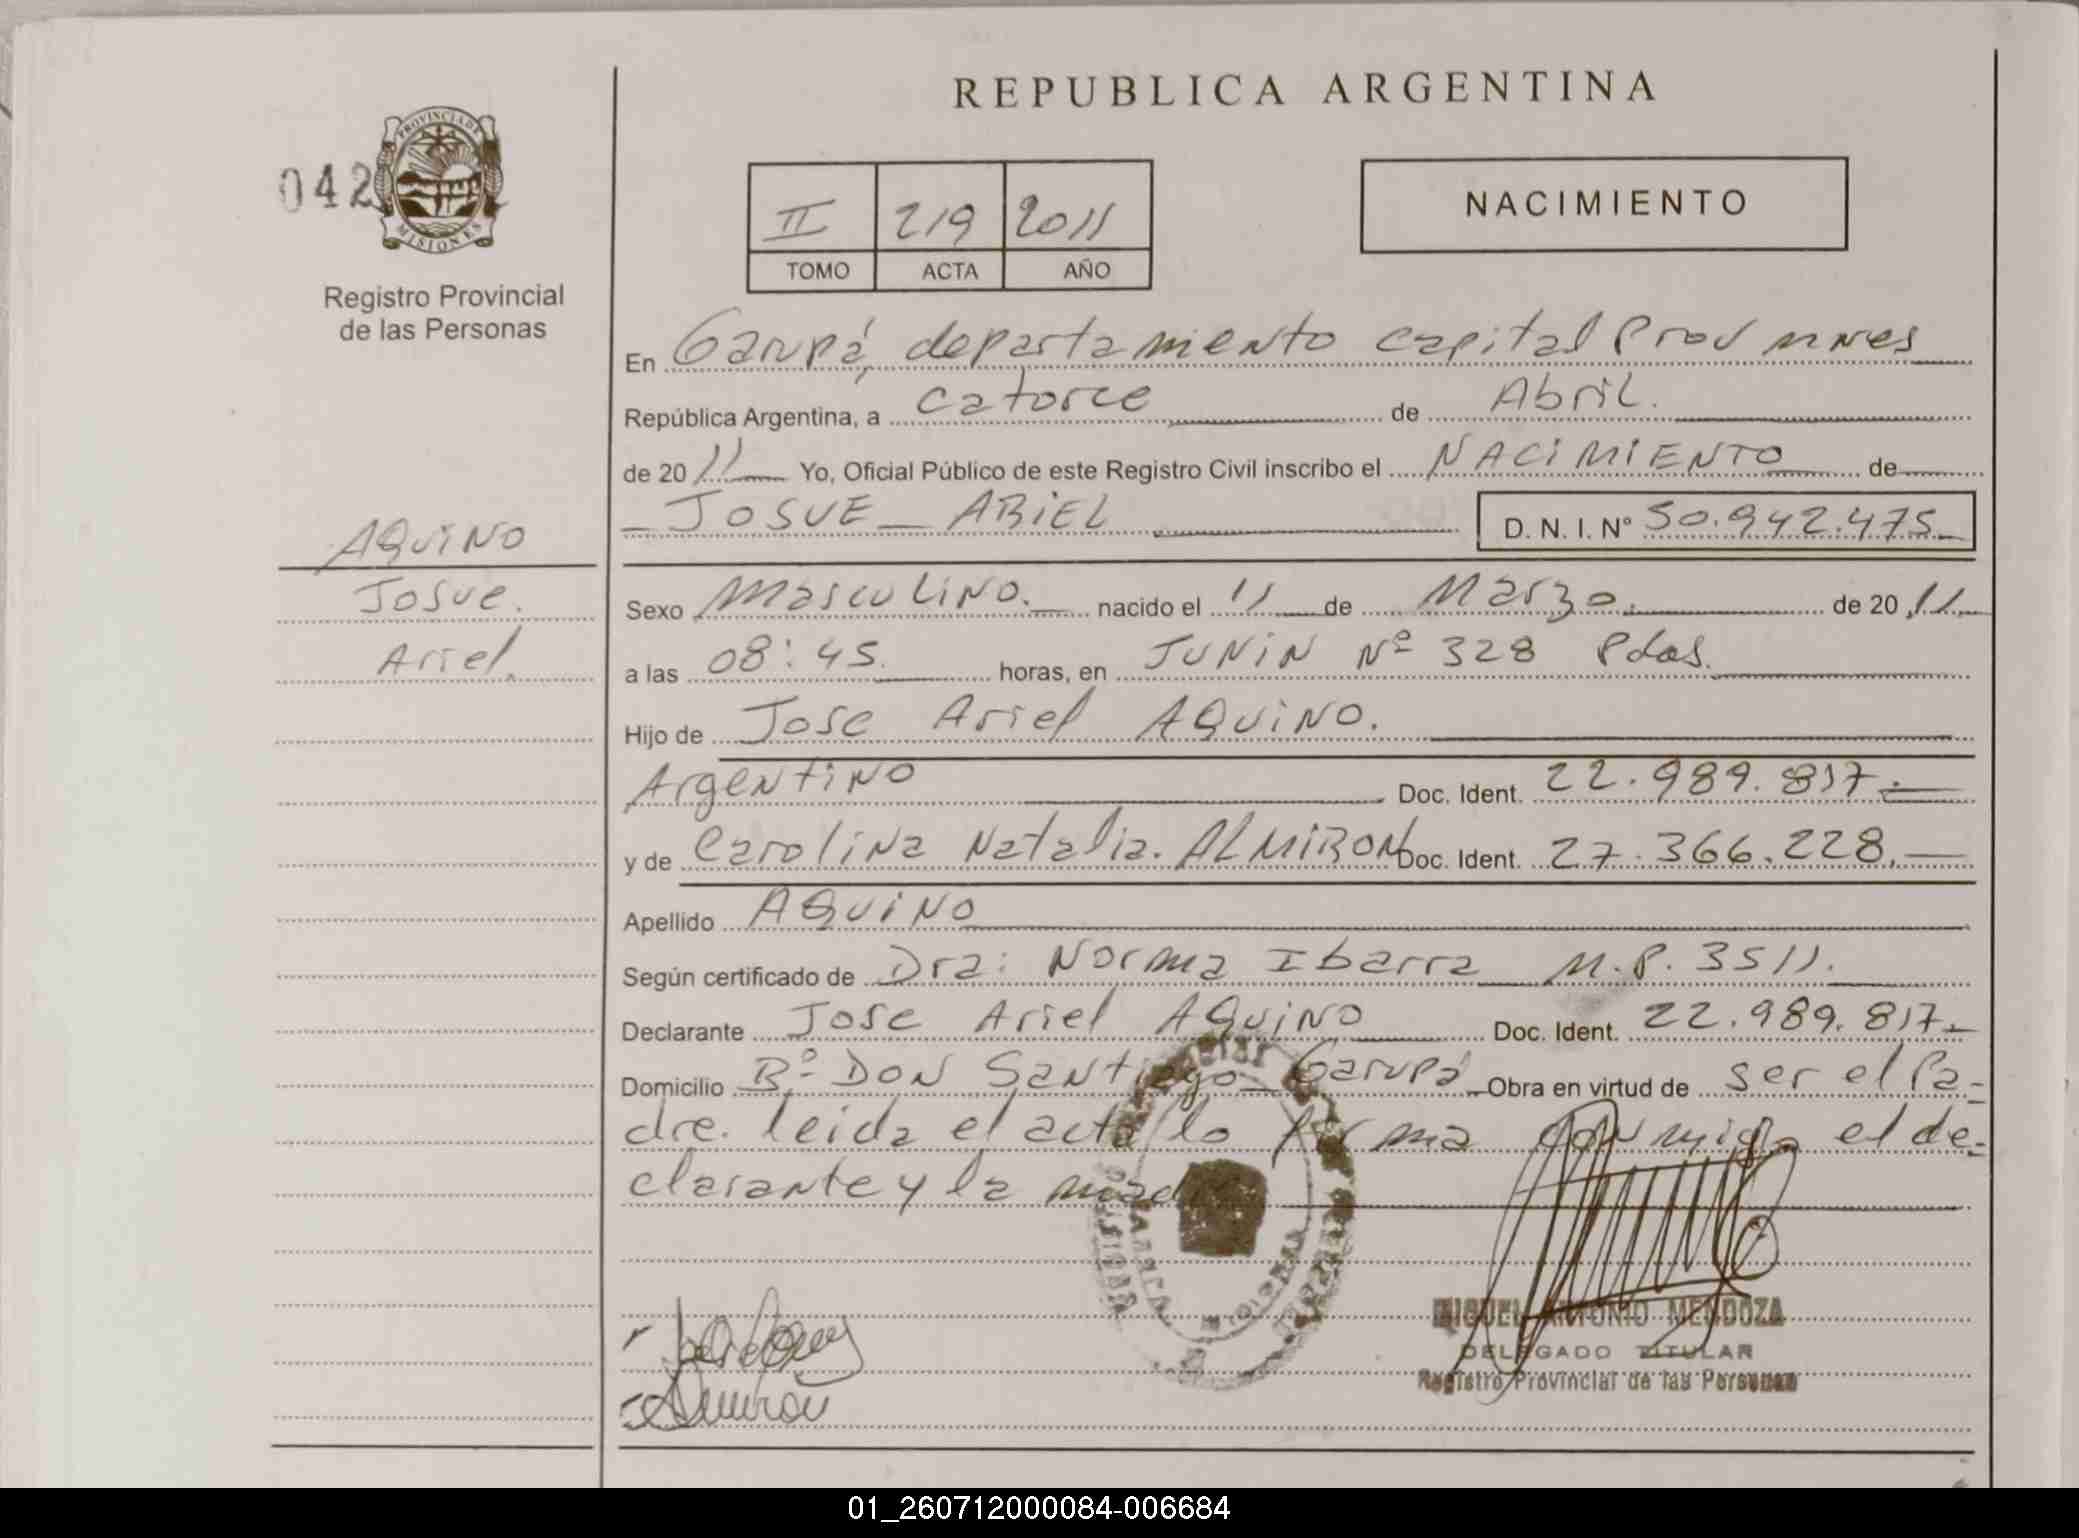 REPUBLICA ARGENTINA
042
PROVINCIA DE
MISIONES
Registro Provincial
de las Personas
II 219 2011
TOMO ACTA AÑO
NACIMIENTO
En Garupá, departamento capital Prov
República Argentina, a catorce de Abril.
de 20 11 Yo, Oficial Público de este Registro Civil inscribo el NACIMIENTO de
JOSUE ARIEL D. N. I. N° 50.942.475
AQUINO
Josue.
Ariel.
Sexo Masculino. nacido el 11 de Marzo. de 20 11
a las 08:45. horas, en JUNIN Nº 328 Pdas.
Hijo de Jose Ariel AQUINO.
Argentino Doc. Ident. 22.989.817.
y de Carolina Natalia. ALMIRON Doc. Ident. 27.366.228.
Apellido AQUINO
Según certificado de Dra: Norma Ibarra M.P. 3511.
Declarante Jose Ariel AQUINO Doc. Ident. 22.989.817
Domicilio Bº DON Santiago Garupá Obra en virtud de ser el Pa-
dre. leida el acta lo firma conmigo el de-
clarante y la madre
MIGUEL ANTONIO MENDOZA
DELEGADO TITULAR
Registro Provincial de las Personas
Almiron
01_260712000084-006684